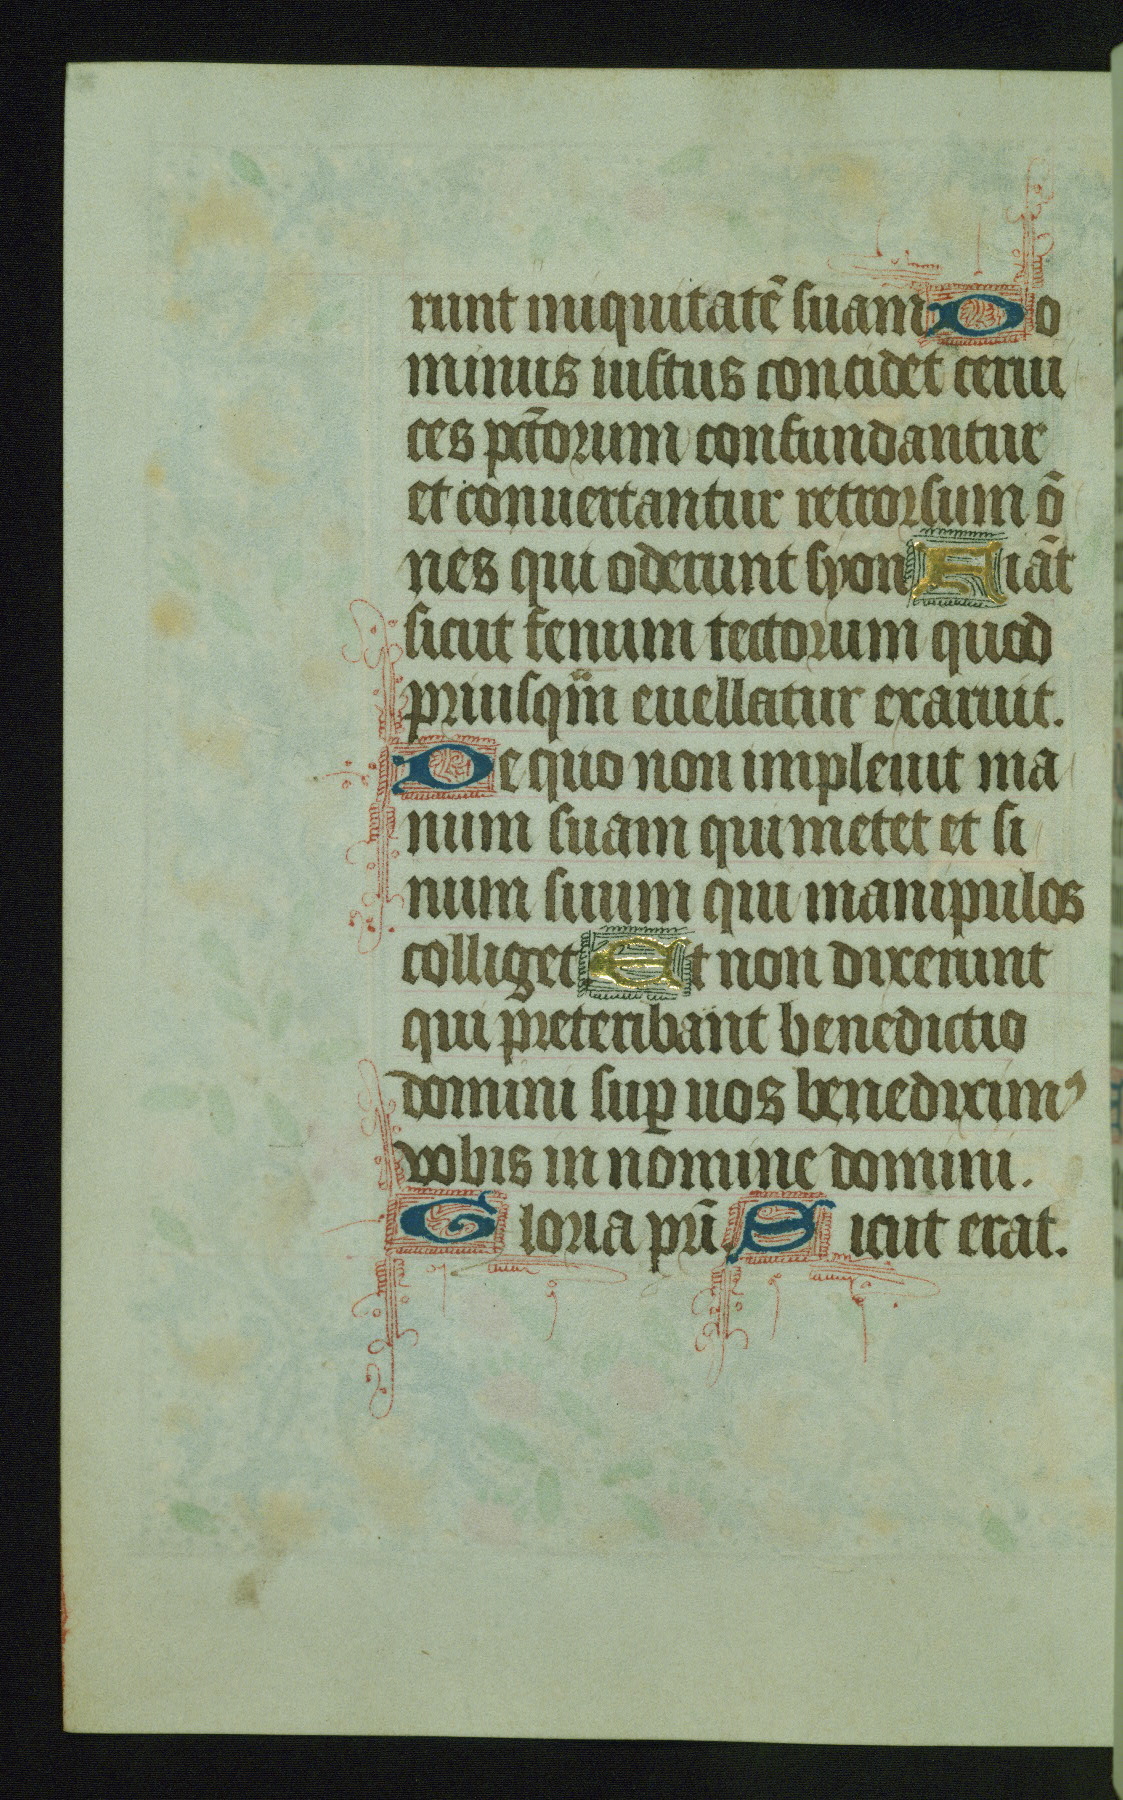 runt iniquitatē suam Do
minus iustus concidet cerui
ces pctōrum confundantur
et conuertantur retrorsum ō
nes qui oderunt syon Fiāt
sicut fenum tectorum quod
priusqm̄ euellatur exaruit.
De quo non impleuit ma
num suam qui metet et si
num suum qui manipulos
colliget Et non dixerunt
qui preteribant benedictio
domini suꝑ uos benediximꝰ
vobis in nomine domini.
Gloria pr̄i Sicut erat.